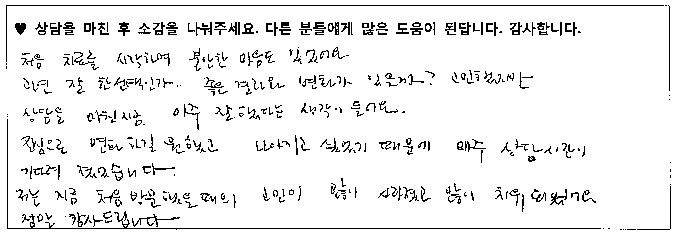 ♥ 상담을 마친 후 소감을 나눠주세요. 다른 분들에게 많은 도움이 된답니다. 감사합니다.
처음 치료를 시작하며 불안한 마음도 있었어요
과연 잘 한 선택인가.. 좋은 결과와 변화가 있을까? 고민했지만
상담을 마친 지금 아주 잘 했다는 생각이 들어요.
진심으로 변화하길 원했고 나아지고 싶었기 때문에 매주 상담시간이
기다려 졌었습니다
저는 지금 처음 방문했을 때의 고민이 많이 사라졌고 많이 치유 되었어요
정말 감사드립니다